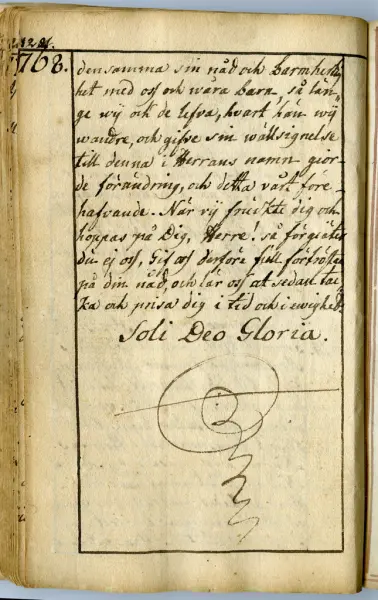 768.
densamma sin nåd och barmhertig
het med oss och wåra barn, så län
ge wij och de lefva, hvart hän wij
wandre, och gifve sin wällsignelse
till denna i Herrans namn gior
de förändring, och detta vårt före
hafvande. När vij fruckte dig och
hoppas på Dig, Herre! så förgäter
du ej oss, Gif oss derföre full förtröstan
på din nåd, och lär oss at sedan tac
ka och prisa dig i tid och i ewighet.
Soli Deo Gloria.